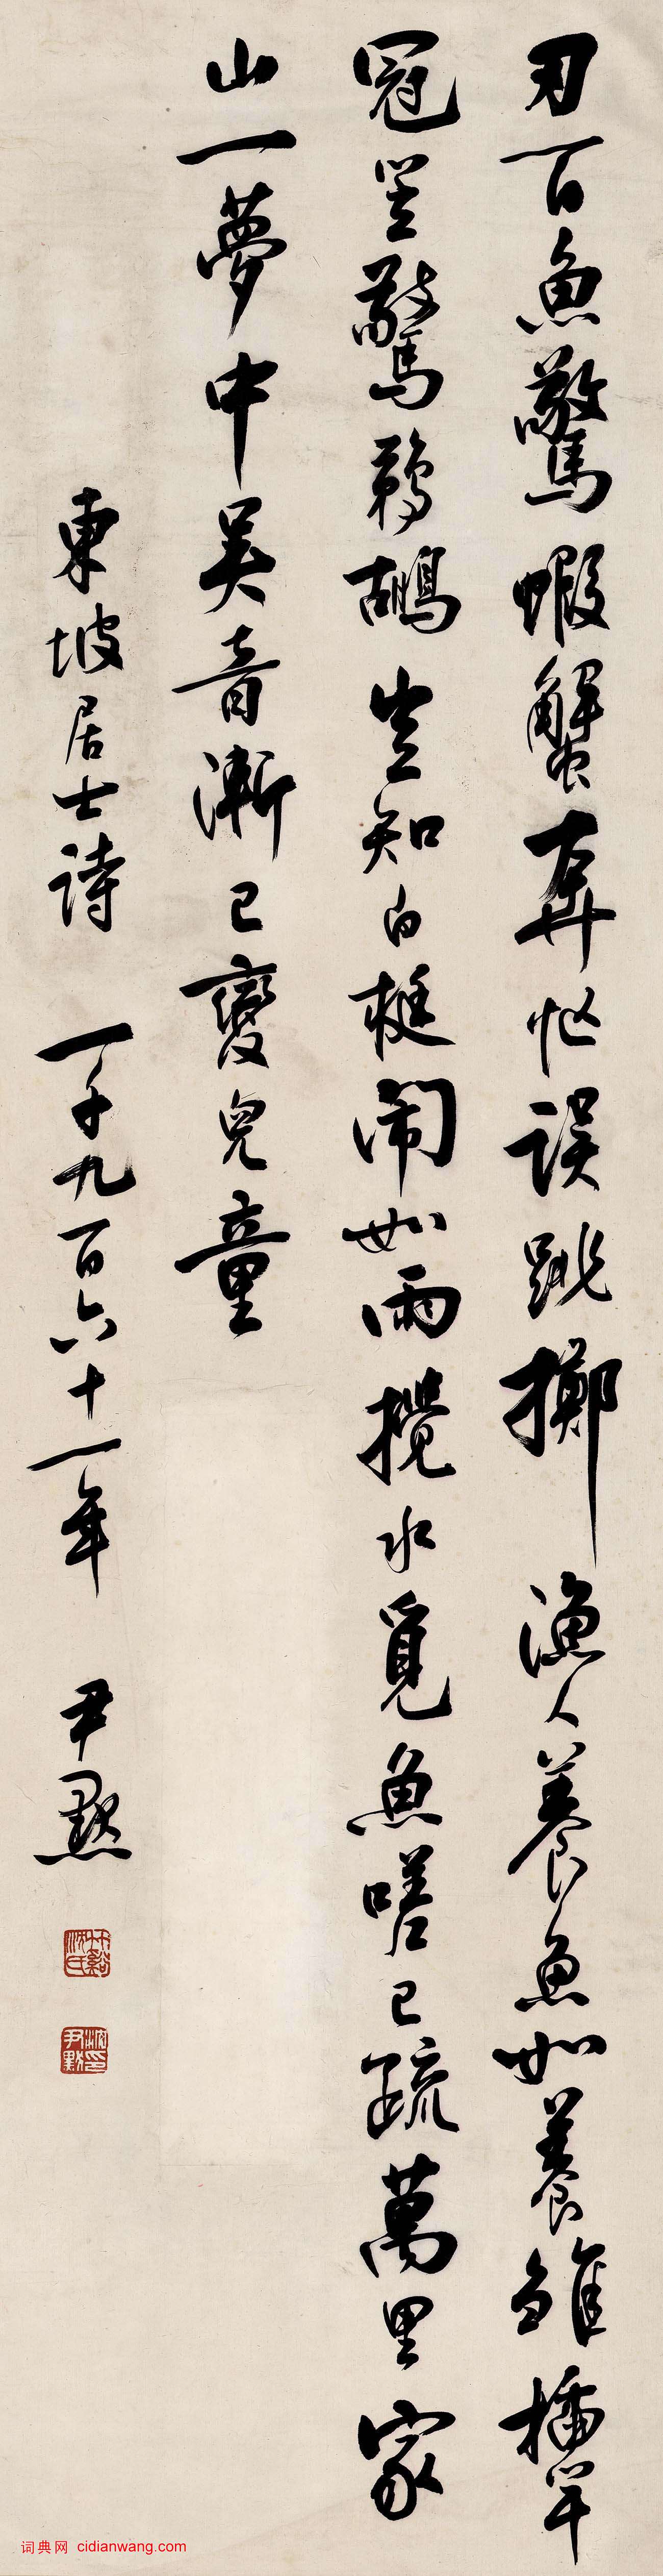 刃百魚驚蝦蟹奔忙誤跳擲漁人養魚如養雛插竿
冠笠驚鵜鶘豈知白梃鬧如雨攪水覓魚嗟已疏萬里家
山一夢中吴音漸已變兒童
東坡居士詩 一千九百六十一年 尹默
竹谿沈氏
沈尹默印
词典网 cidianwang.com